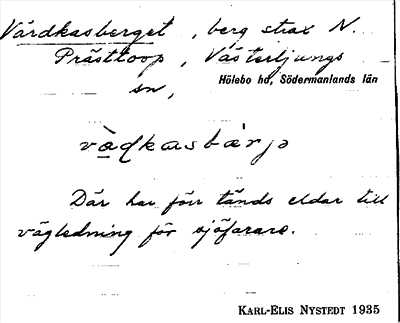 Vårdkasberget, berg strax N.
Prästtorp, Västerljungs
Hölebo hd, Södermanlands län
sn,
vàḍkasbärjə
Där har förr tänds eldar till
vägledning för sjöfarare.
KARL-ELIS NYSTEDT 1935